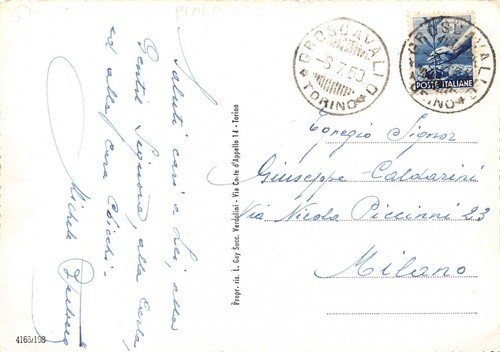 Saluti cari a Lei, alla
Gentil Signora, alla Carla,
ed alla cara Cicchi.
Michele
Propr. ris. L. Gay Succ. Verdolini - Via Corte d'Appello 14 - Torino
4166/198
GROSCAVALLO
-8.7.50
TORINO
GROSCAVALLO
TORINO
POSTE ITALIANE
Egregio Signor
Giuseppe Caldarini
Via Nicola Piccinni 23
Milano